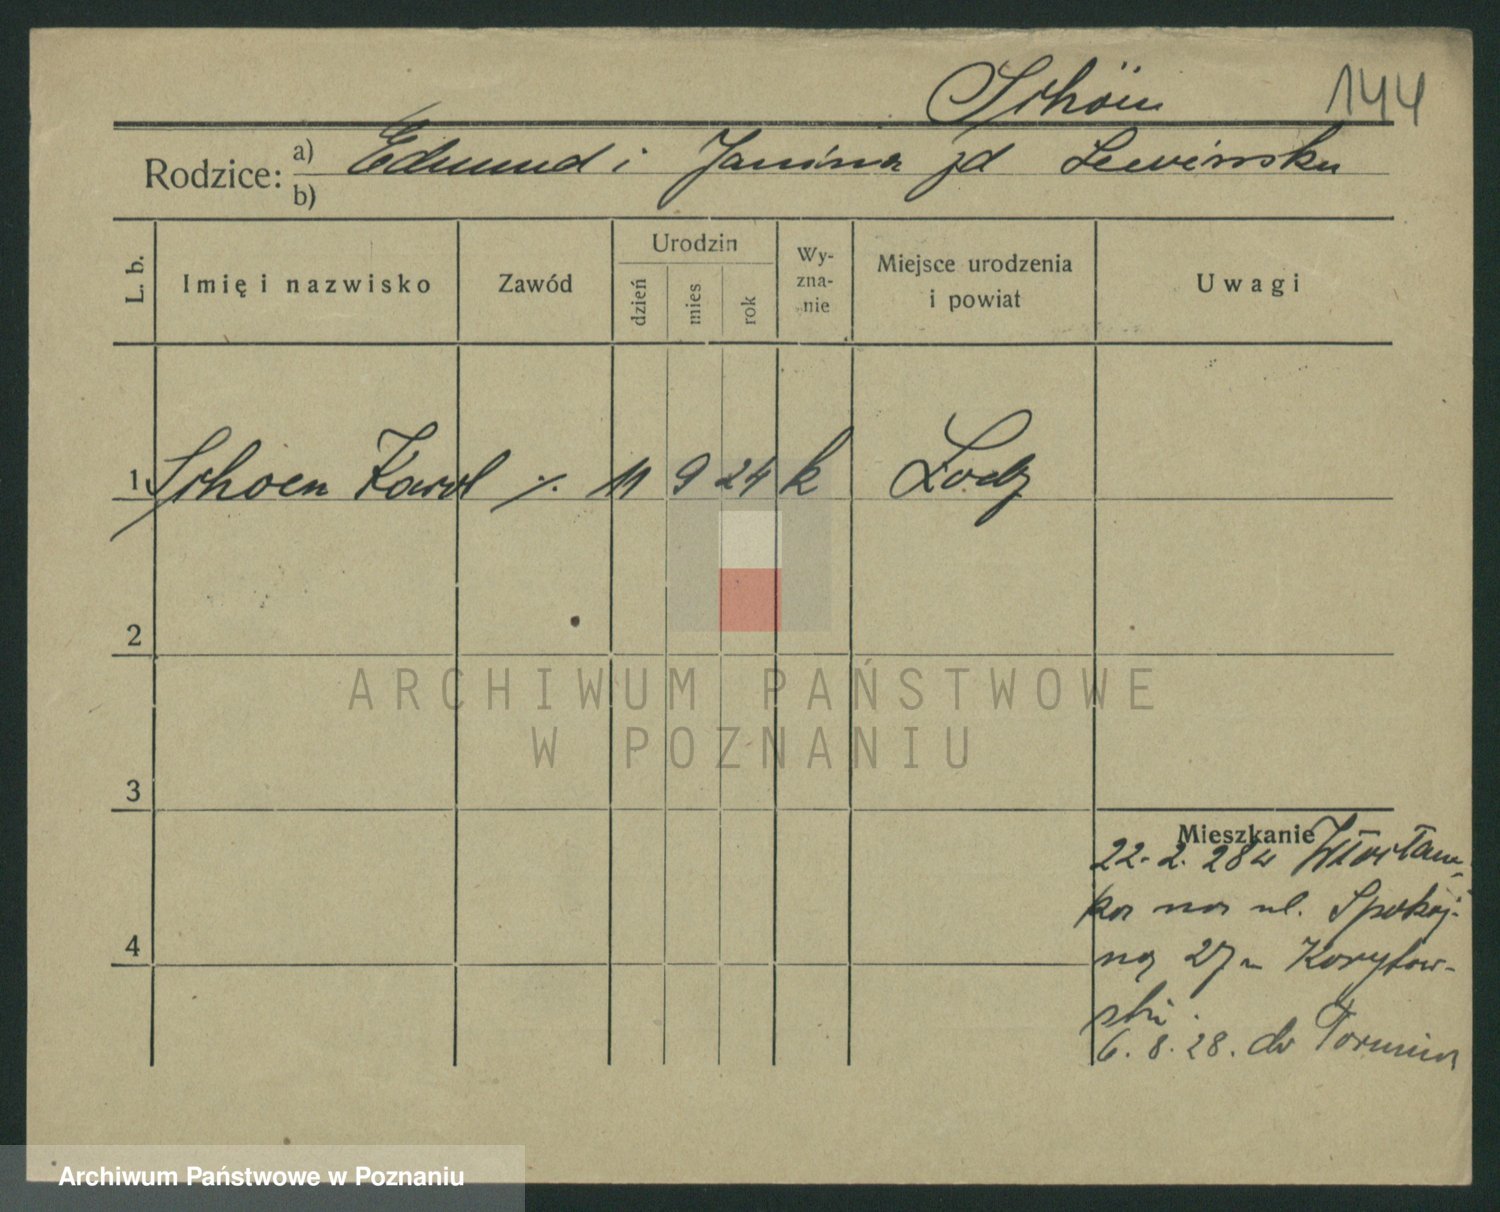 Schön 144
Rodzice: a) Edmund i Janina zd Lewinska
b)
L. b. Imię i nazwisko Zawód Urodzin dzień mies rok Wy-zna-nie Miejsce urodzenia i powiat Uwagi
1 Schoen Karol ./. 11 9 24 k Lodz
2
3
4
Mieszkanie
22. 2. 28 z Włocław-
ka na ul. Spokój-
ną 27 Korytow-
ski.
6. 8. 28. do Torunia
ARCHIWUM PAŃSTWOWE
W POZNANIU
Archiwum Państwowe w Poznaniu